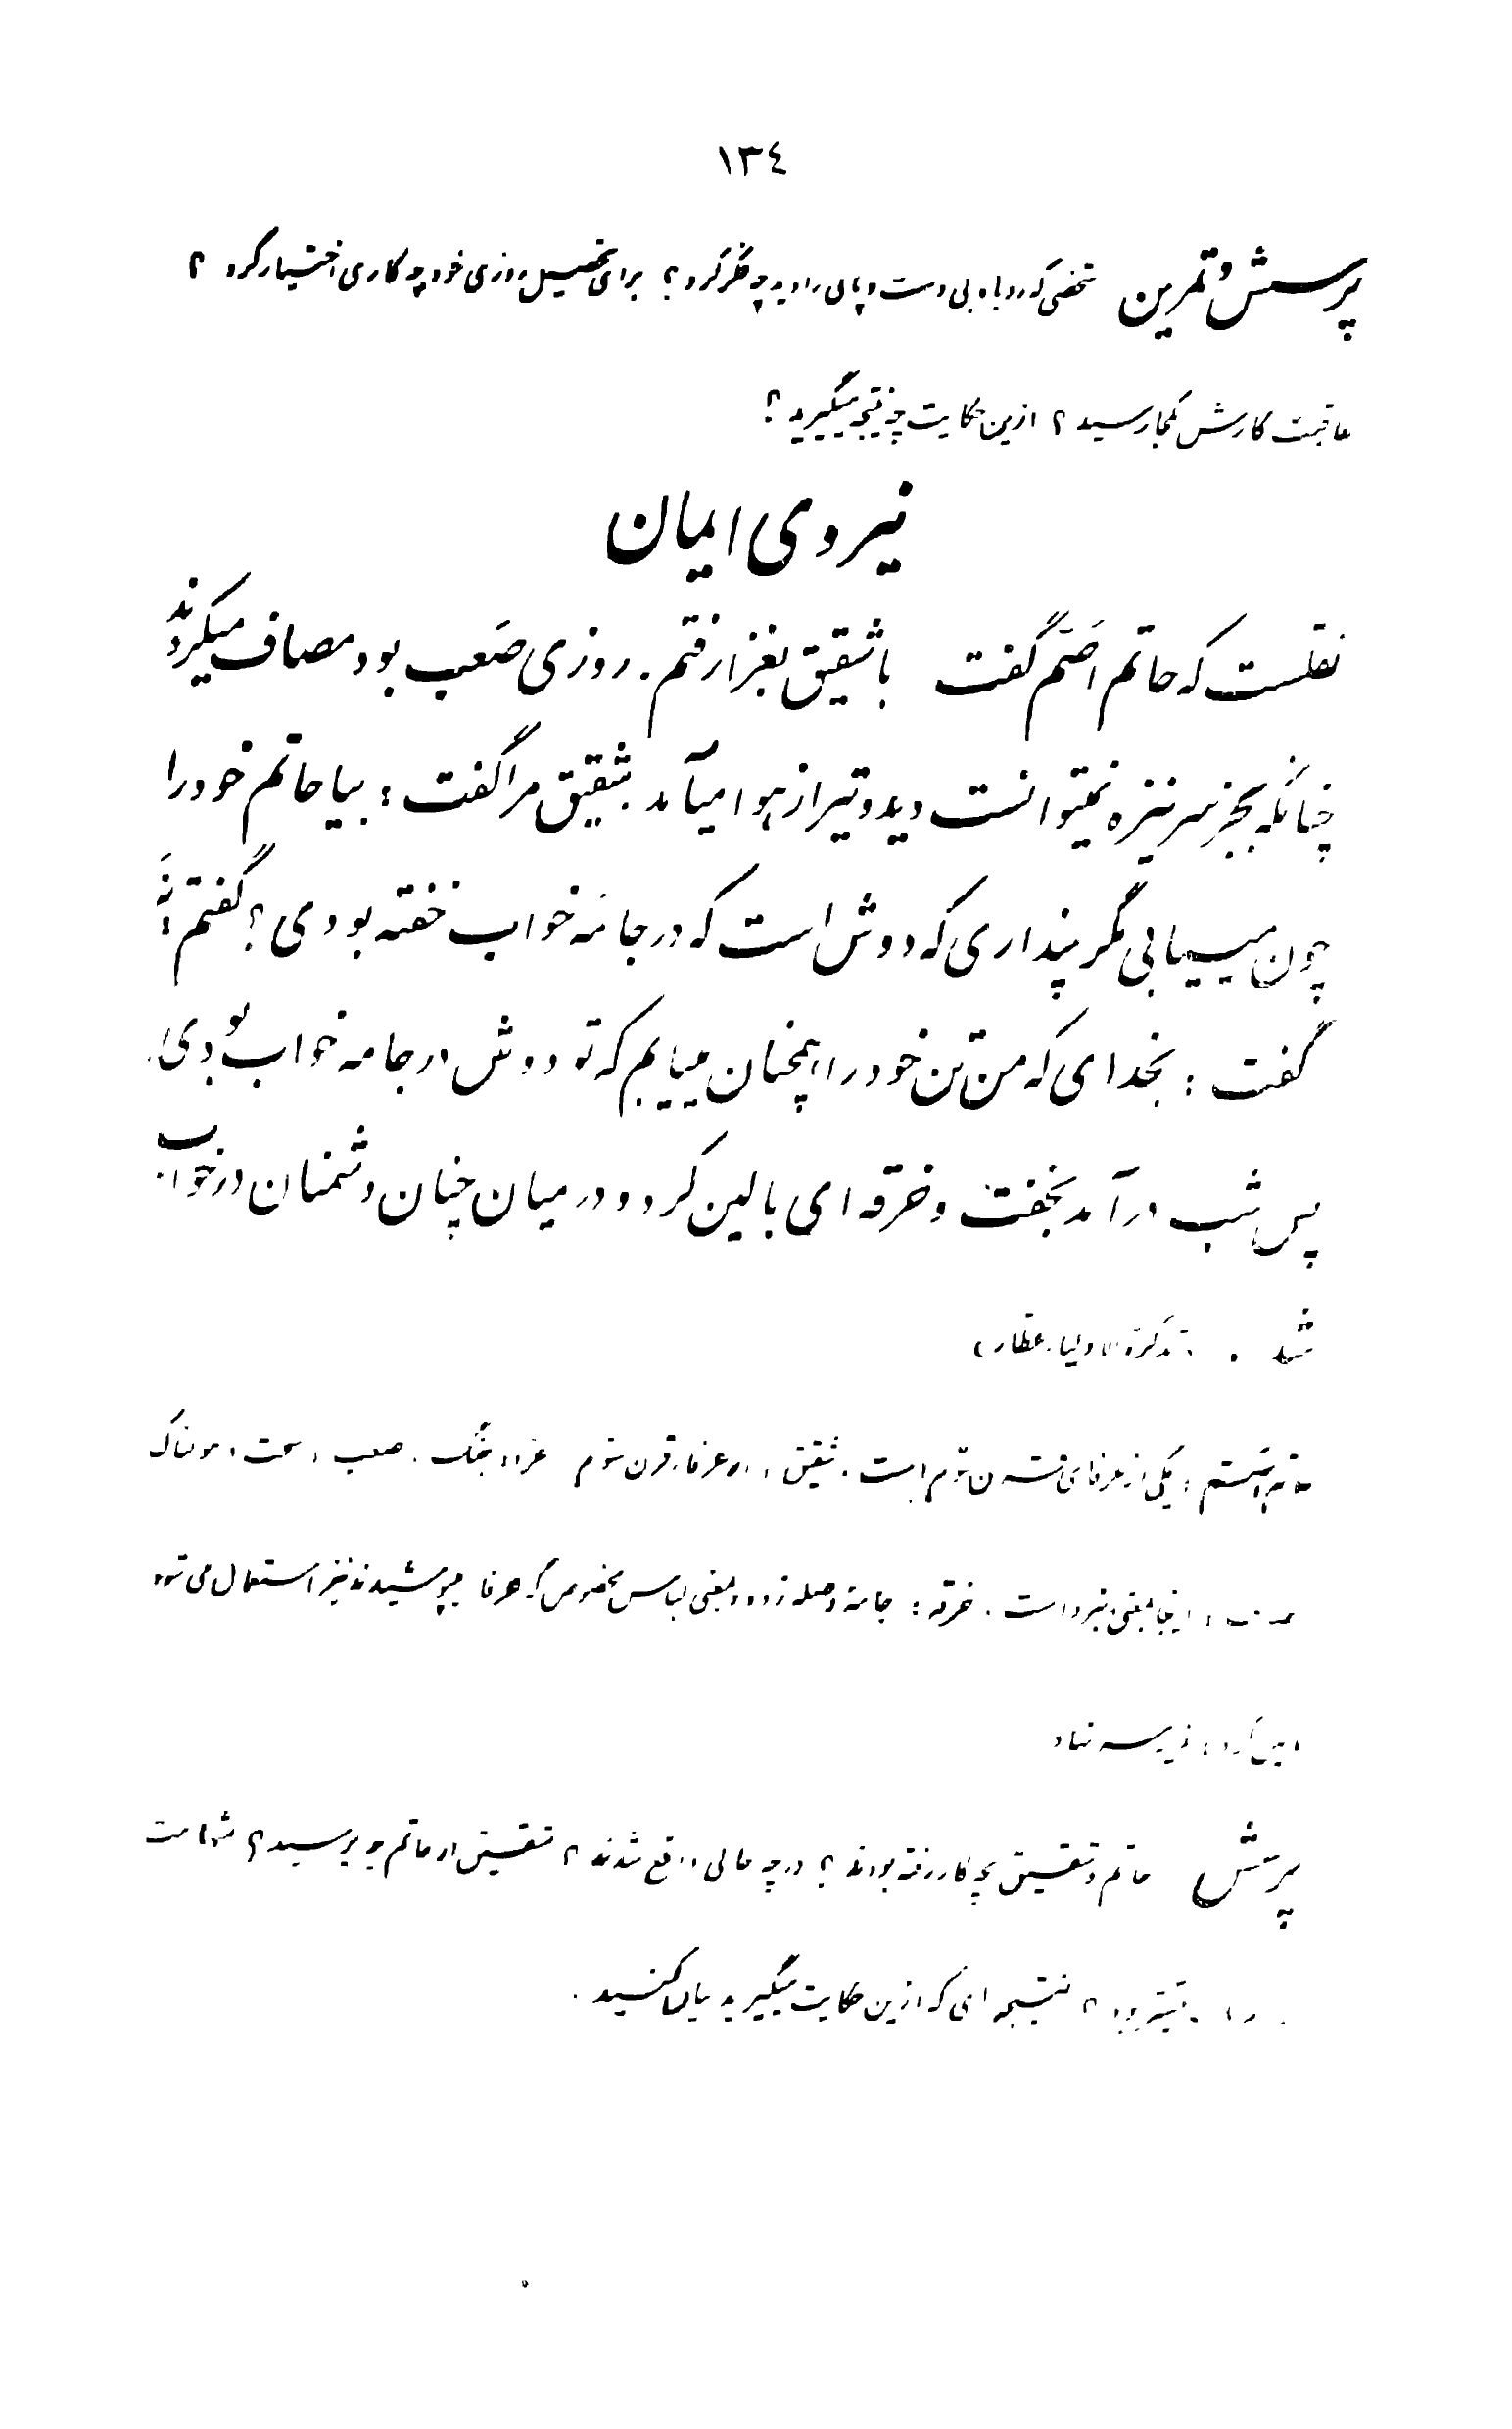 ١٣٤
پرسش و تمرین شخصی که روباه بی دست و پای را دید چه فکر کرد ؟ برای تحصیل روزی خود چه کاری اختیار کرد ؟
عاقبت کارش بکجا رسید ؟ ازین حکایت چه نتیجه میگیرید ؟
نیروی ایمان
نقلست که حاتم اَصَمّ گفت با شقیق بغزا رفتم . روزی صَعب بود مصاف میکردند
چنانکه بجز سر نیزه نمیتوانست دید و تیر از هوا میآمد شقیق مرا گفت : بیا حاتم خود را
چون میبیابی مگر پنداری که دوش است که در جامهٔ خواب خفته بودی ؟ گفتم : نَه
گفت : بخدای که من تن خود را همچنان مییابم که تو دوش در جامه خواب بودی .
پس شب درآمد بخفت و خرقه ای بالین کرد و در میان چنان دشمنان در خواب
شد . تذکرة الاولیاء عطار )
حاتم اصم : یکی از عرفای قرن سوم است . شقیق : از عرفاء قرن سوم غزا : جنگ . صعب : سخت ، هولناک
اینجا بمعنی نبرد است . خرقه : جامهٔ وصله زده و بمعنی لباس مخصوص که عرفا میپوشیدند نیز استعمال می شود
بالین کرد : زیر سر نهاد
پرسش حاتم و شقیق بچه کار رفته بودند ؟ در چه حالی واقع شدند ؟ شقیق از حاتم چه پرسید ؟ شهامت
؟ نتیجه ای که ازین حکایت میگیرید بیان کنید .